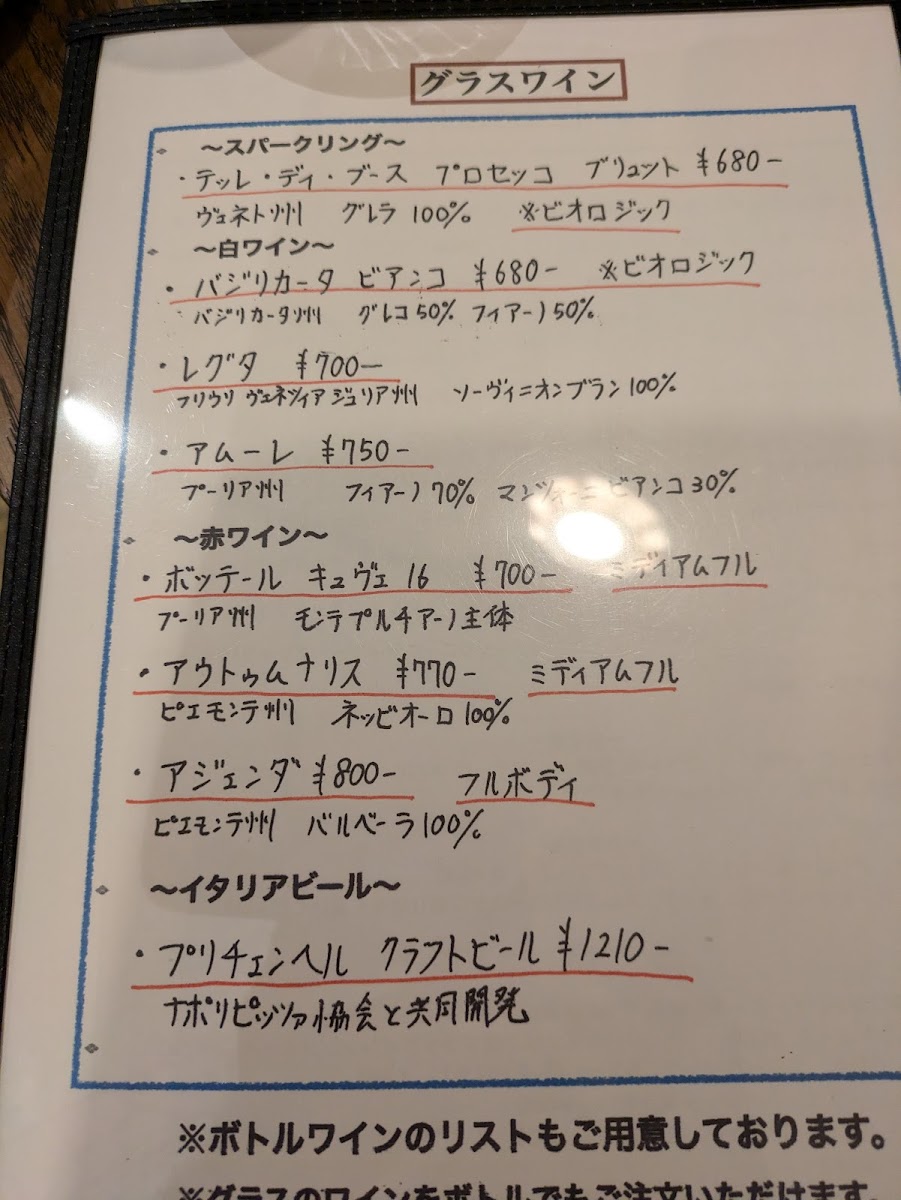 グラスワイン
〜スパークリング〜
・テッレ・ディ・ブース プロセッコ ブリュット ¥680-
ヴェネト州 グレラ 100% ※ビオロジック
〜白ワイン〜
・バジリカータ ビアンコ ¥680- ※ビオロジック
バジリカータ州 グレコ50% フィアーノ50%
・レグタ ¥700-
フリウリ ヴェネツィア ジュリア州 ソーヴィニオンブラン100%
・アムーレ ¥750-
プーリア州 フィアーノ70% マンゾォーニ ビアンコ30%
〜赤ワイン〜
・ボッテール キュヴェ 16 ¥700- ミディアムフル
プーリア州 モンテプルチアーノ主体
・アウトゥムナリス ¥770- ミディアムフル
ピエモンテ州 ネッビオーロ100%
・アジェンダ ¥800- フルボディ
ピエモンテ州 バルベーラ100%
〜イタリアビール〜
・プリチェンヘル クラフトビール ¥1210-
ナポリピッツァ協会と共同開発
※ボトルワインのリストもご用意しております。
※グラスのワインをボトルでもご注文いただけます